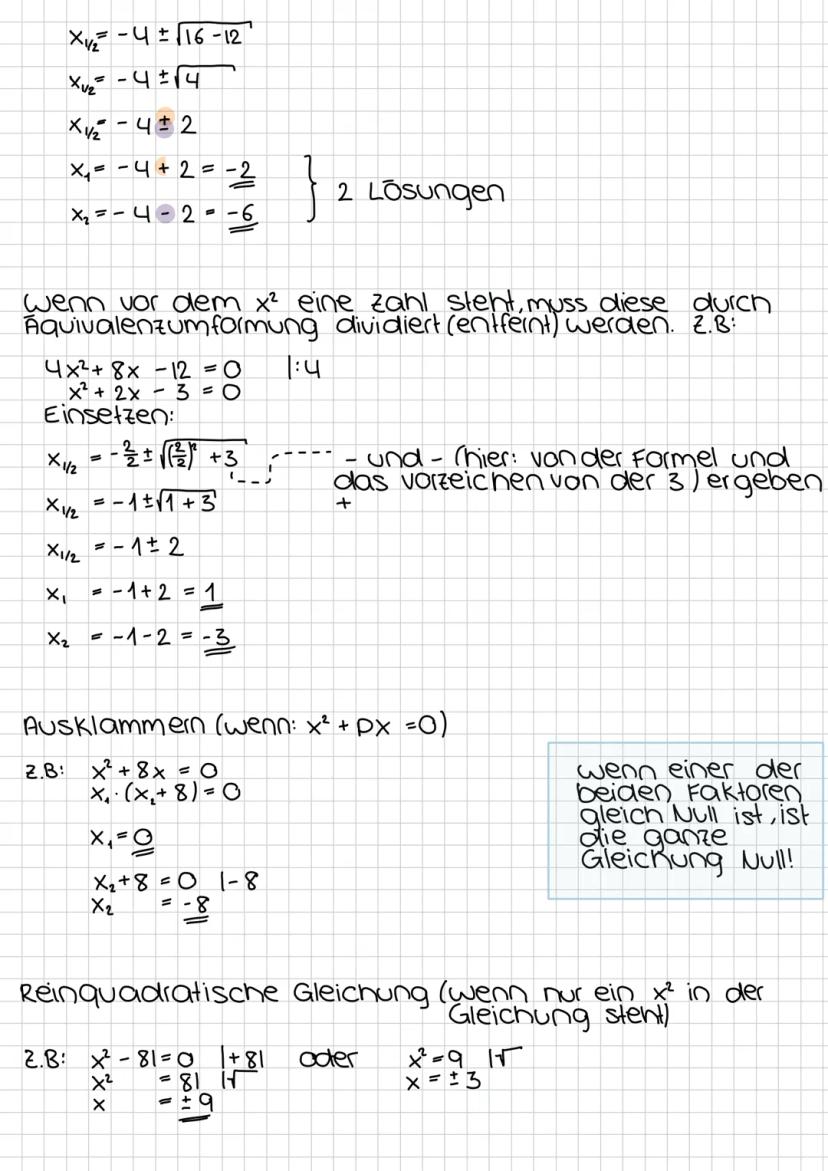 x₁/₂ = -4 ± √16-12
x₁/₂ = -4 ± √4
x₁/₂ = -4 ± 2
x₁ = -4 + 2 = -2
x₂ = -4 - 2 = -6
} 2 Lösungen
Wenn vor dem x² eine Zahl steht, muss diese durch
Äquivalenzumformung dividiert (entfernt) werden. Z.B:
4x² + 8x - 12 = 0 |:4
x² + 2x - 3 = 0
Einsetzen:
x₁/₂ = -2/2 ± √(2/2)² + 3
- und - (hier: von der Formel und
das Vorzeichen von der 3) ergeben
+
x₁/₂ = -1 ± √1 + 3
x₁/₂ = -1 ± 2
x₁ = -1 + 2 = 1
x₂ = -1 - 2 = -3
Ausklammern (wenn: x² + px = 0)
Z.B: x² + 8x = 0
x₁ · (x₂ + 8) = 0
x₁ = 0
x₂ + 8 = 0 |-8
x₂ = -8
Wenn einer der
beiden Faktoren
gleich Null ist, ist
die ganze
Gleichung Null!
Reinquadratische Gleichung (wenn nur ein x² in der
Gleichung steht)
Z.B: x² - 81 = 0 |+81 oder x² = 9 |√
x² = 81 |√ x = ±3
x = ±9